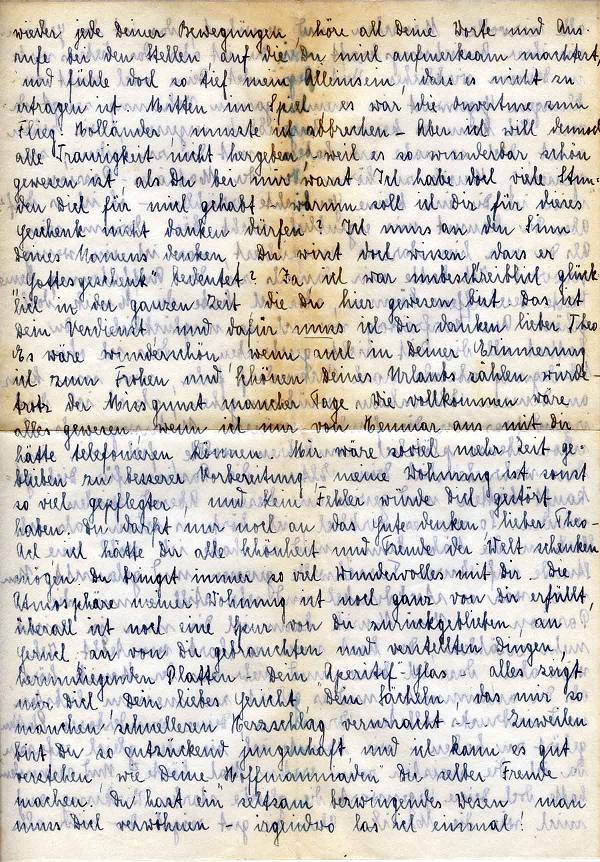 wieder jede Deiner Bewegungen, höre all Deine Worte und Aus-
rufe bei den Stellen, auf die Du mich aufmerksam machtest,
und fühle doch so tief mein Alleinsein, dass es nicht zu
ertragen ist. Mitten im Spiel - es war die Ouvertüre zum
Flieg. Holländer, musste ich abbrechen - Aber ich will dennoch
alle Traurigkeit nicht hergeben, weil es so wunderbar schön
gewesen ist, als Du bei mir warst. Ich habe doch viele Stun-
den Dich für mich gehabt - warum soll ich Dir für dieses
Geschenk nicht danken dürfen? Ich muss an den Sinn
Deines Namens denken. Du wirst doch wissen, dass er
"Gottesgeschenk" bedeutet? Ja ich war unbeschreiblich glück-
lich in der ganzen Zeit, die Du hier gewesen bist. Das ist
Dein Verdienst und dafür muss ich Dir danken lieber Theo.
Es wäre wunderschön, wenn auch in Deiner Erinnerung
ich zum Frohen und Schönen Deines Urlaubs zählen würde -
trotz der Missgunst mancher Tage. Wie vollkommen wäre
alles gewesen, wenn ich nur von aus mit Dir
hätte telefonieren können. Mir wäre soviel mehr Zeit ge-
blieben zu besserer Vorbereitung, meine Wohnung ist sonst
so viel gepflegter, und kein Fehler würde Dich gestört
haben. Du darfst nur noch an das Gute denken, lieber Theo -
Ach, ich hätte Dir alle Schönheit und Freude der Welt schenken
mögen. Du bringst immer so viel Wundervolles mit Dir. Die
Atmosphäre meiner Wohnung ist noch ganz von Dir erfüllt,
überall ist noch eine Spur von Dir zurückgeblieben, an
Geruch, an von Dir gebrauchten und verstellten Dingen,
herumliegenden Platten - Dein Aperitif-Glas - alles zeigt
mir Dich, Dein liebes Gesicht, Dein Lächeln, das mir so
manchen schnelleren Herzschlag verursacht -- Zuweilen
bist Du so entzückend jungenhaft, und ich kann es gut
verstehen, wie Deine "" Dir selber Freude
machen. "Du hast ein seltsam bezwingendes Wesen, man
muss Dich verwöhnen - irgendwo las ich einmal: